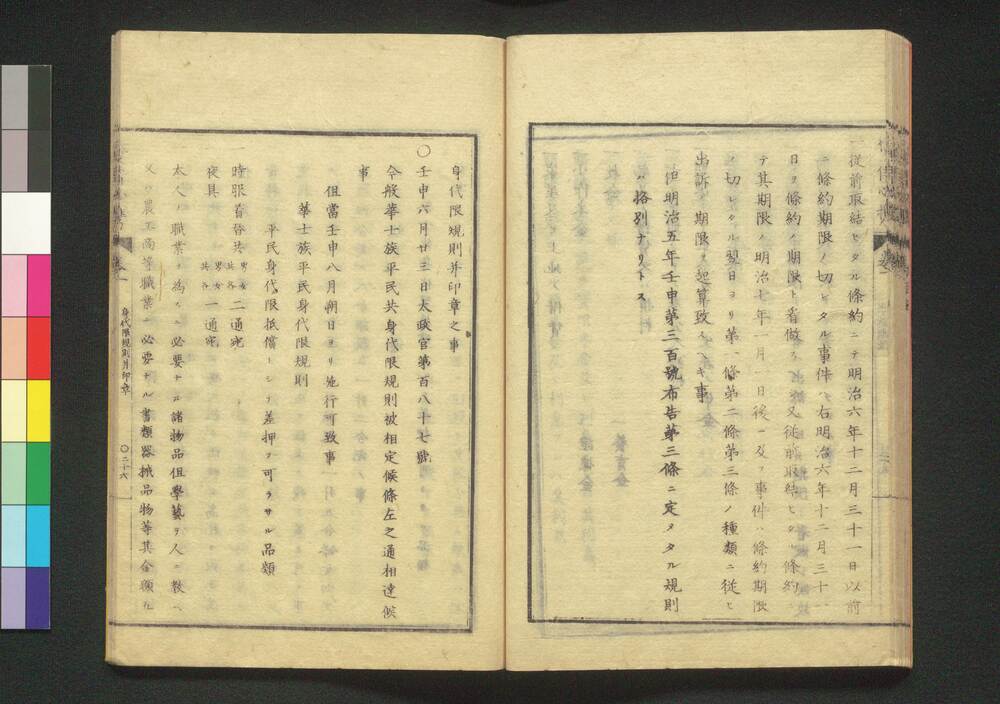 一従前取結ヒタル條約ニテ明治六年十二月三十一日以前
ニ條約期限ノ切ヒタル事件ハ右明治六年十二月三十一
日ヲ條約ノ期限ト看做シ又従前取結ヒタル條約ニ
テ其期限ノ明治七年一月一日後ニ及フ事件ハ條約期限
ノ切ヒタル翌日ヨリ第一條第二條第三條ノ種類ニ従ヒ
出訴ノ期限ヲ起算致スヘキ事
但明治五年壬申第三百號布告第三條ニ定メタル規則
ハ格別ナリトス
身代限規則并印章之事
〇壬申六月廿三日太政官第百八十七號
今般華士族平民共身代限規則被相定候條左之通相達候
事
但當壬申八月朔日ヨリ施行可致事
華士族平民身代限規則
平民身代限抵償トシテ差押フ可ラサル品類
一
時服着替共 男女共各 二通宛
夜具 男女共各 一通宛
太人ノ職業ヲ為スニ必要ナル諸物品但學藝ヲ人ニ教ヘ
又ハ農工商等職業ニ必要ナル書類器械品物等其金額
身代限規則并印章
〇二十六